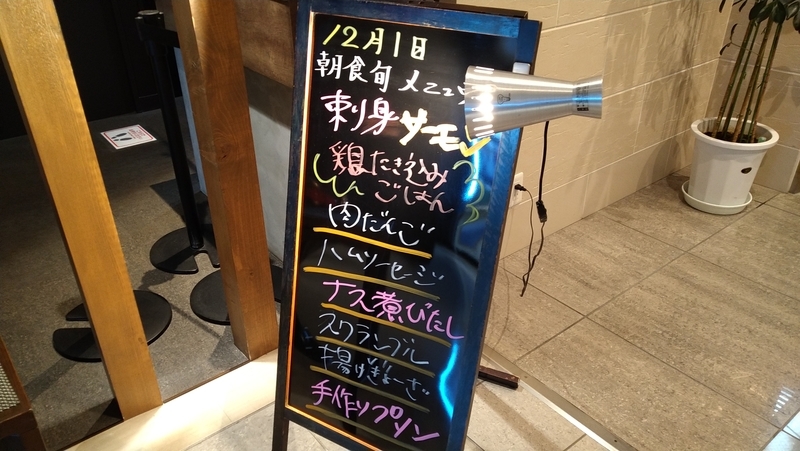 12月1日
朝食旬メニュー
刺身サーモン
鶏たき込み
ごはん
肉だんご
ハムソーセージ
ナス煮びたし
スクランブル
揚げぎょーざ
手作りプリン